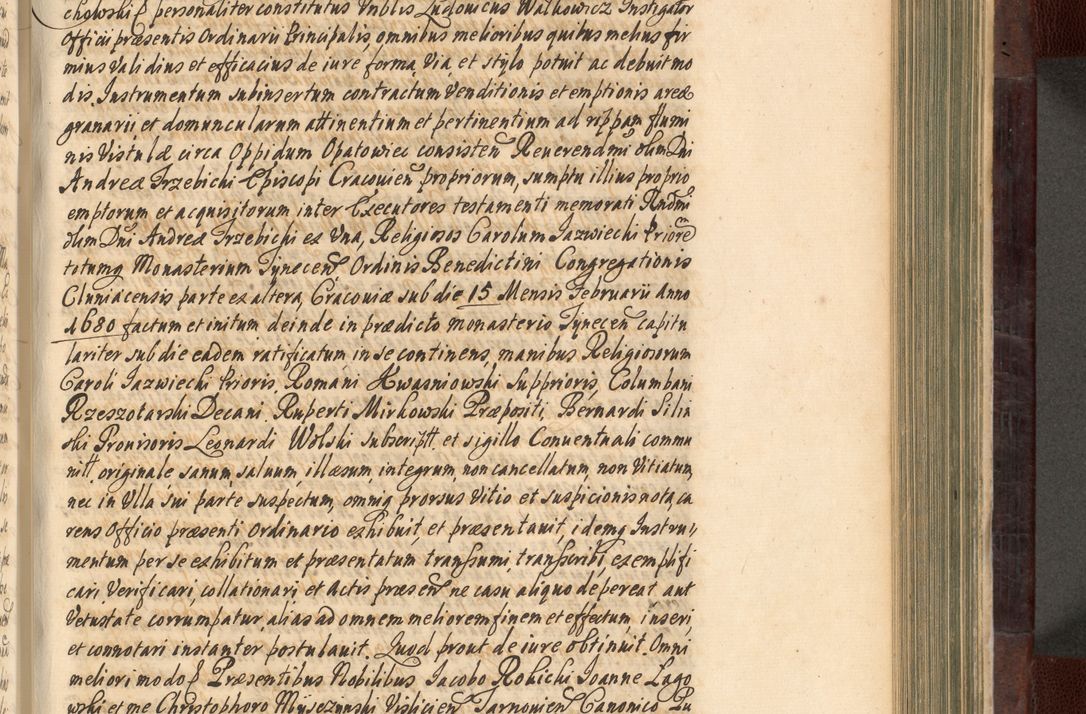 chowski personaliter constitutus Nblis Ludovicus Walkowicz Instigator
Officii præsentis Ordinarii Principalis, omnibus melioribus quibus melius fir
mius validius et efficacius de iure, forma, via, et stylo potuit ac debuit mo
dis, Instrumentum subinsertum contractum Venditionis et emptionis areæ
granarii et domuncularum attinentium et pertinentium ad rippam flumi
nis Vistulæ circa Oppidum Opatowiec consisten Reuerendmi olim Dni
Andreæ Trzebichi Episcopi Cracouien propriorum, sumptu illius proprio
emptorum et acquisitorum inter Executores testamenti memorati Rndmi
olim Dni Andreæ Trzebichi ex Una, Religiosos Carolum Jazwiechi Priore
totumq Monasterium Tynecen Ordinis Benedictini Congregationis
Cluniacensis parte ex altera, Cracouiæ sub die 15 Mensis Februarii Anno
1680 factum et initum deinde in prædicto monasterio Tynecen capitu
lariter sub die eadem ratificatum in se continens, manibus Religiosorum
Caroli Jazwiechi Prioris, Romani Kwasniowski Supprioris, Columbani
Rzeszotarski Decani, Ruperti Mirkowski Præpositi, Bernardi Silin
ski Prouisoris Leonardi Wolski subscriptt. et sigillo Conuentuali commu
nitt. originale sanum, saluum, illæsum, integrum, non cancellatum, non Vitiatum,
nec in Ulla sui parte suspectum, omniq prorsus Vitio et suspicionis nota, ca
rens Officio præsenti Ordinario exhibuit, et præsentauit, idemq Instru
mentum per se exhibitum et præsentatum transsumi, transscribi, exemplifi
cari, Verificari, collationari, et Actis præsen ne casu aliquo depereat aut
Vetustate corrumpatur, alias ad omnem meliorem finem et effectum, inseri,
et connotari instanter postulauit. Quod prout de iure obtinuit. Omni
meliori modo Præsentibus Nobilibus Jacobo Rokichi Joanne Lago
wski et me Christophoro Mysczynski Vislicien Tarnouien Canonico Pu